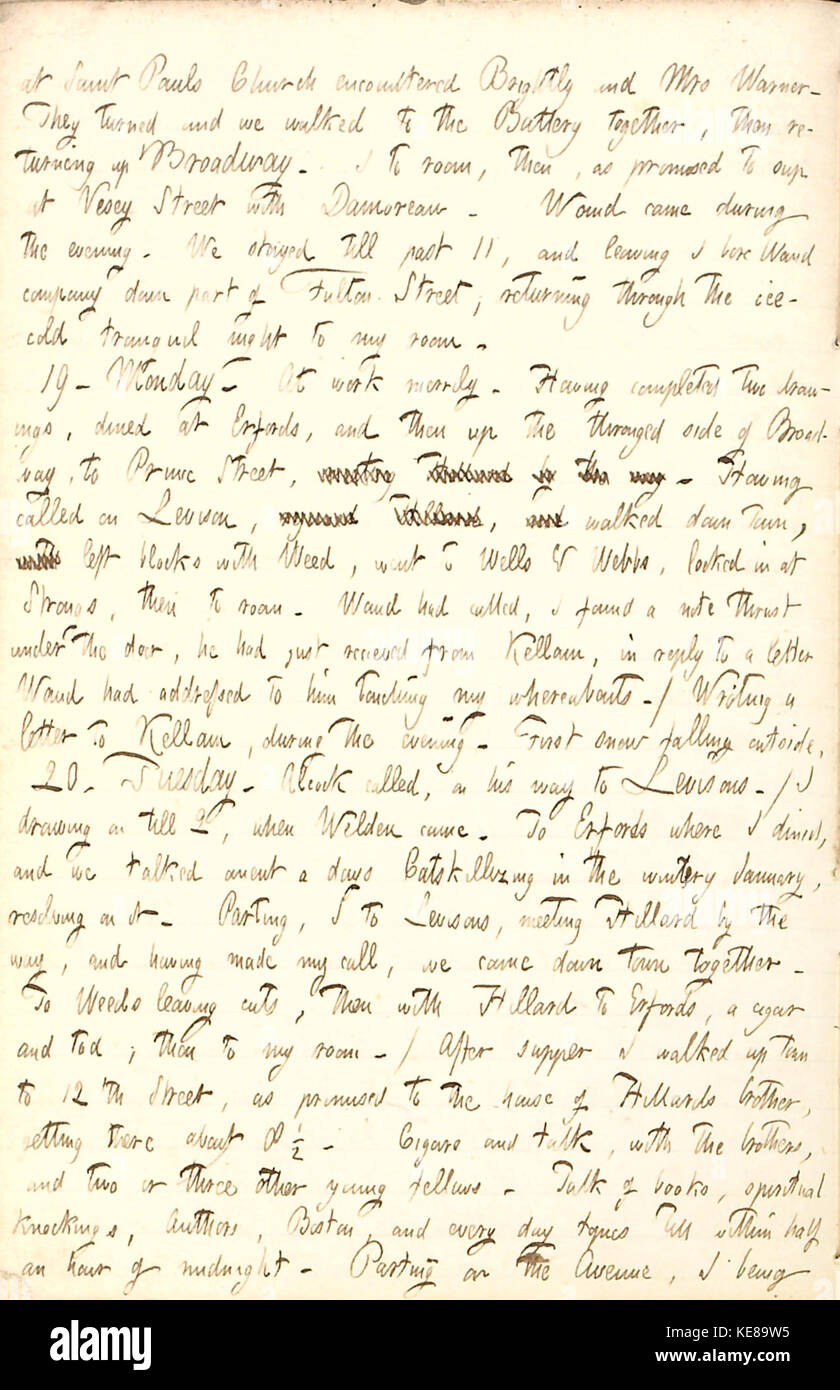 at Saint Pauls Church encountered Brightly and Mrs Warner-
They turned and we walked to the Battery together, then re-
turning up Broadway- I to room, then, as promised to sup
at Vesey Street with Damoreau- Waud came during
the evening- We stayed till past 11, and leaving I bore Waud
company down part of Fulton Street, returning through the ice-
cold tranquil night to my room-
19- Monday- At work merrily- Having completed two draw-
ings, dined at Erfords, and then up the thronged side of Broad-
way, to Prince Street, meeting Hillard by the way- Having
called on Levison, Hillard, and walked down town,
left blocks with Weed, went to Wells & Webbs, looked in at
Strongs, then to room- Waud had called, I found a note thrust
under the door, he had just received from Kellam, in reply to a letter
Waud had addressed to him touching my whereabouts-/ Writing a
letter to Kellam, during the evening- First snow falling outside,
20- Tuesday- Alcock called, on his way to Levisons-/ I
drawing on till 2, when Welden came- To Erfords where I dined,
and we talked anent a days Catskilling in the wintery January,
resolving on it- Parting, I to Levisons, meeting Hillard by the
way, and having made my call, we came down town together-
To Weeds leaving cuts, then with Hillard to Erfords, a cigar
and tod; then to my room-/ After supper I walked up town
to 12th Street, as promised to the house of Hillards brother,
getting there about 8 1/2- Cigars and talk, with the brothers,
and two or three other young fellows- Talk of books, spiritual
knockings, authors, Boston, and every day topics till within half
an hour of midnight- Parting on the Avenue, I being
alamy
Image ID: KE89W5
www.alamy.com